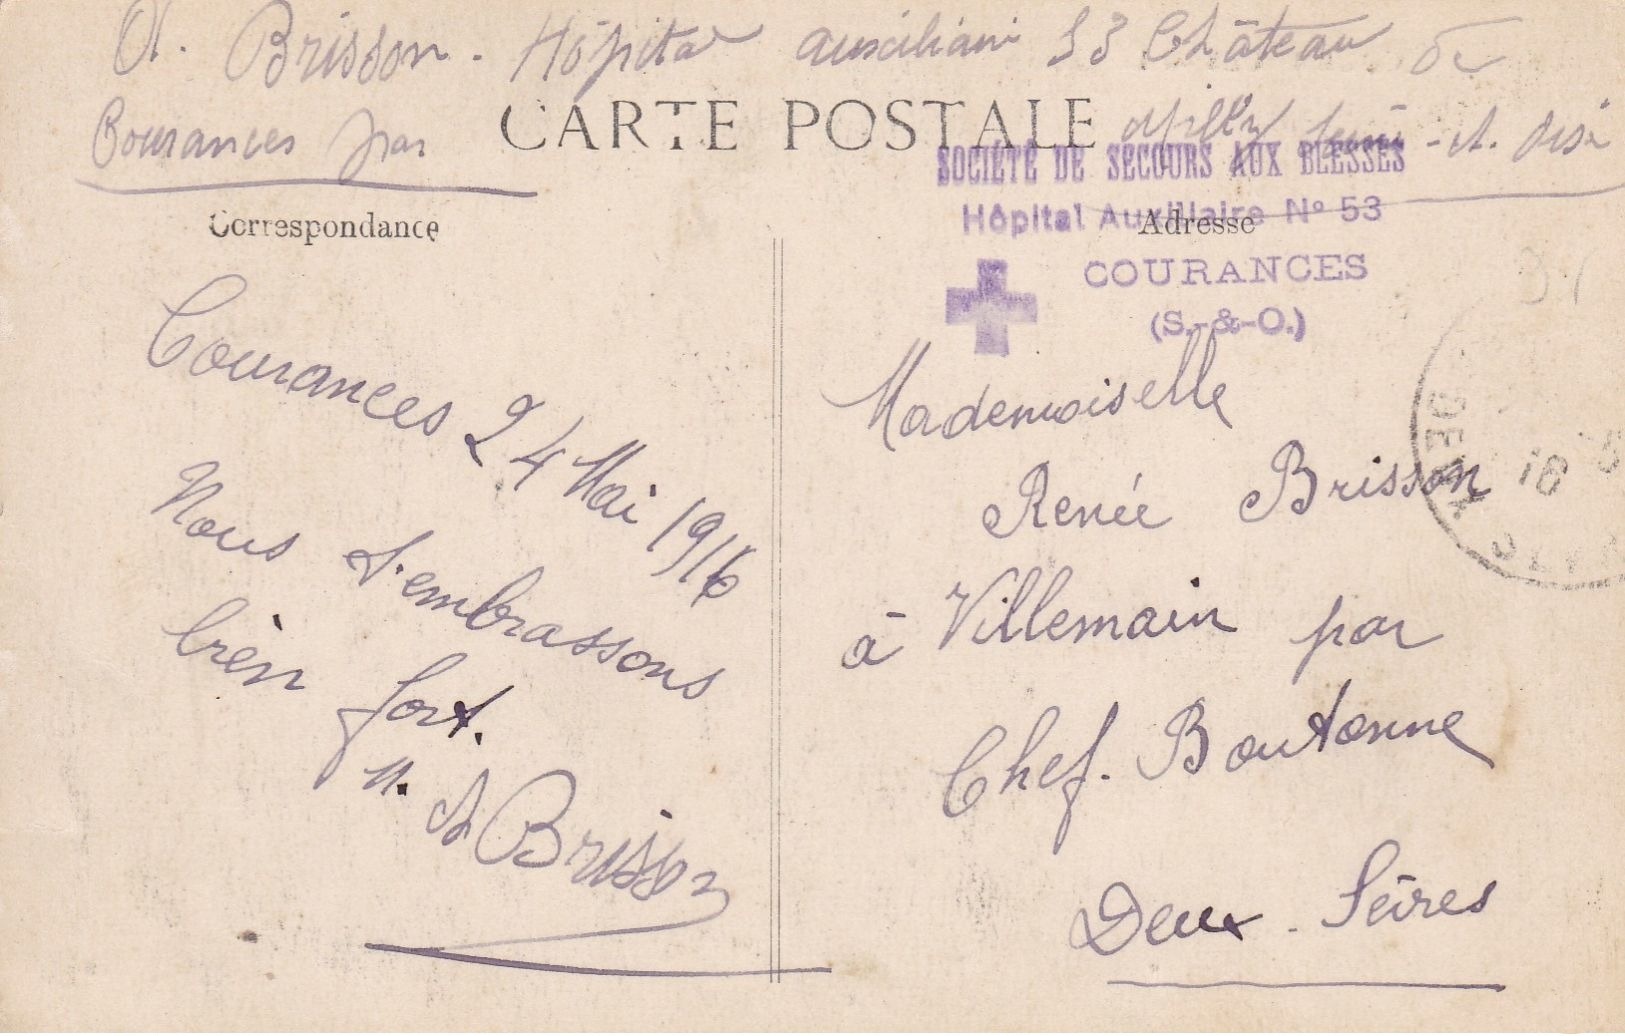 A. Brisson. Hôpital auxiliaire 53 Château de
Courances par Milly Seine-A. Oise
CARTE POSTALE
SOCIÉTÉ DE SECOURS AUX BLESSÉS
Hôpital Auxiliaire Nº 53
COURANCES
(S.-&-O.)
Correspondance
Adresse
Courances 24 Mai 1916
Nous t'embrassons
bien fort.
A Brisson
Mademoiselle
Renée Brisson
à Villemain par
Chef. Boutonne
Deux. Sèvres